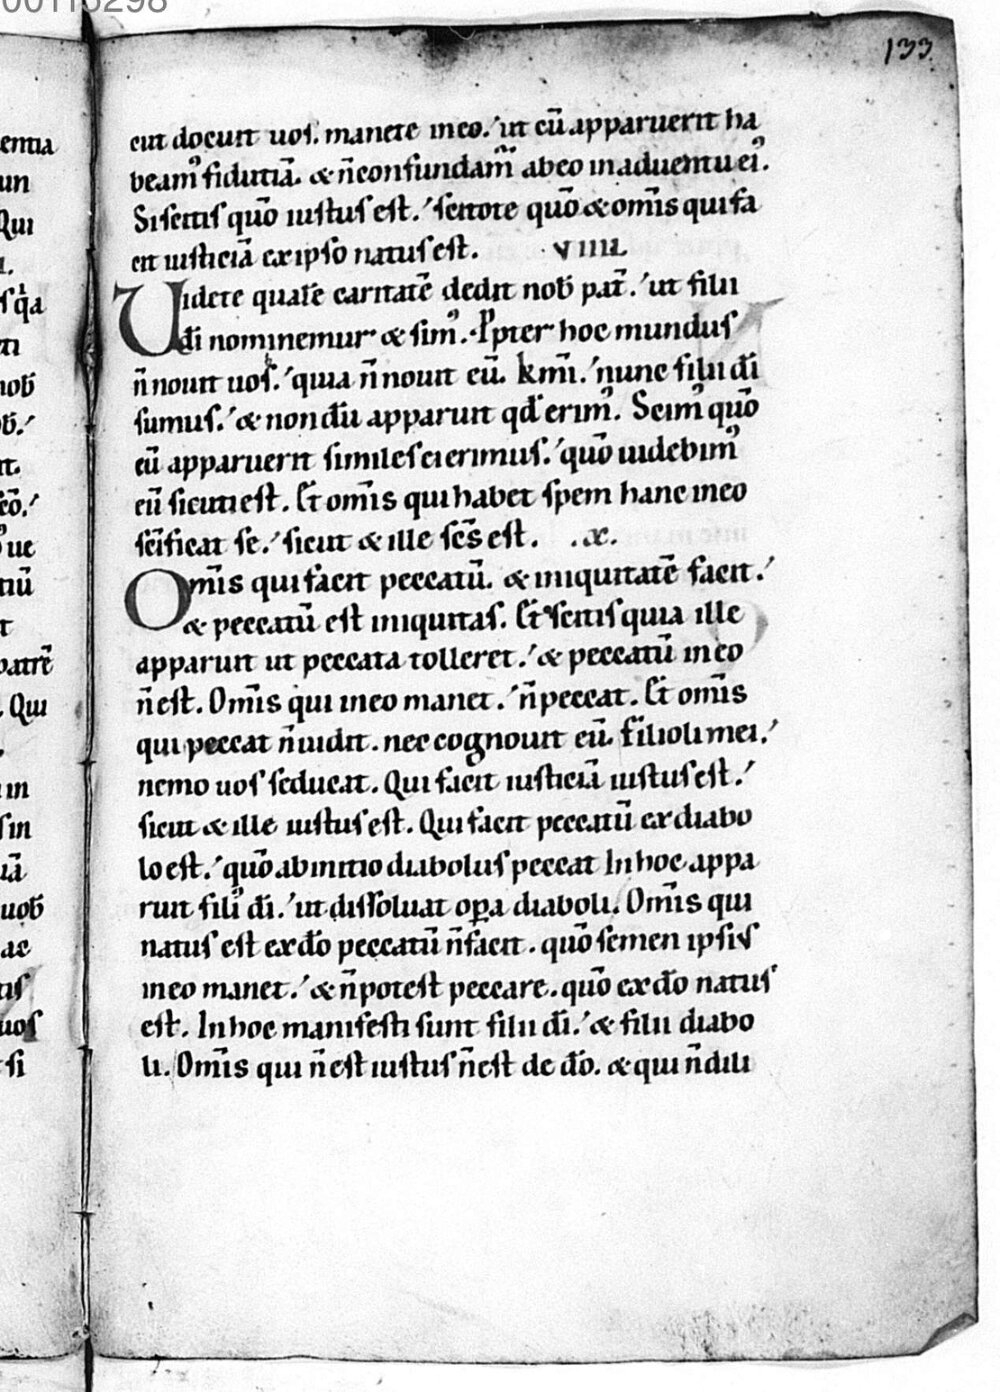 00115298
133
cut docuit uos. manete in eo. ut cū apparuerit ha
beamꝰ fidutiā. & n̄ confundamꝰ ab eo in aduentu eiꝰ.
Si scitis quō iustus est. scitote quō & om̄is qui fa
cit iusticiā ex ipso natus est. VIIII.
Uidete quale caritatē dedit nob̄ pat̄. ut filii
dī nominemur & simꝰ. Ppter hoc mundus
n̄ nouit uos. quia n̄ nouit eū. km̄i. nunc filii dī
sumus. & nondū apparuit qd̄ erimꝰ. Scimꝰ quō
cū apparuerit similes ei erimus. quō uidebimꝰ
eū sicuti est. Et om̄is qui habet spem hanc in eo
sc̄ificat se. sicut & ille sc̄s est. .x.
Om̄is qui facit peccatū. & iniquitatē facit.
& peccatū est iniquitas. Et scitis quia ille
apparuit ut peccata tolleret. & peccatū in eo
n̄ est. Om̄is qui in eo manet. n̄ peccat. Et om̄is
qui peccat n̄ uidit. nec cognouit eū. filioli mei.
nemo uos seducat. Qui facit iusticiā iustus est.
sicut & ille iustus est. Qui facit peccatū ex diabo
lo est. quō ab initio diabolus peccat In hoc appa
ruit filiꝰ dī. ut dissoluat opa diaboli. Om̄is qui
natus est ex dō peccatū n̄ facit. quō semen ipsius
in eo manet. & n̄ potest peccare. quō ex dō natus
est. In hoc manifesti sunt filii dī. & filii diabo
li. Om̄is qui n̄ est iustus n̄ est de dō. & qui n̄ dili
entia
un
Qui
sq̇a
nob̄
ꝰ ue
tiū
patrē
. Qui
in
sin
iā
uob̄
ac
tis
uos
si